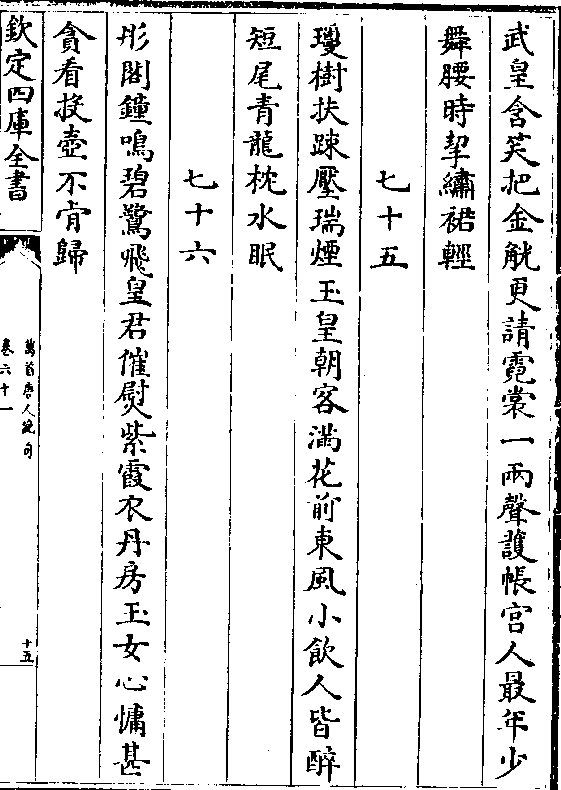 武皇含笑把金觥更請霓裳一兩聲護帳宫人最年少
舞腰時挈繡裙輕
七十五
瓊樹扶踈壓瑞煙玉皇朝客滿花前東風小飲人皆醉
短尾青龍枕水眠
七十六
彤閣鐘鳴碧鷺飛皇君催熨紫霞衣丹房玉女心慵甚
貪看投壺不肯歸
欽定四庫全書
萬首唐人絶句
卷六十一
十五